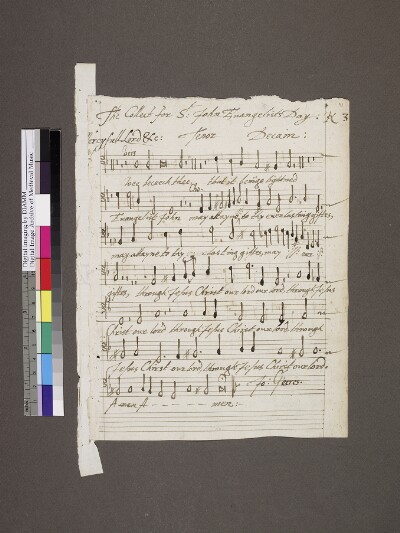 The Collect for St: John Evangelists Day: K 3
Mercyfull Lord &c: Tenor Decani:
vers
Wee beseech thee that it
Cho:
Evangelist John may attayne to thy everlasting giftes,
may attayne to thy lasting giftes, may
giftes, through Jesus Christ our lord our lord through Jesus
Christ our lord through Jesus Christ our lord, through
Jesus Christ our lord, through Jesus Christ our lord.
A men A - - - - - men:
Digital Imaging by DIAMM
Digital Image Archive of Medieval Music